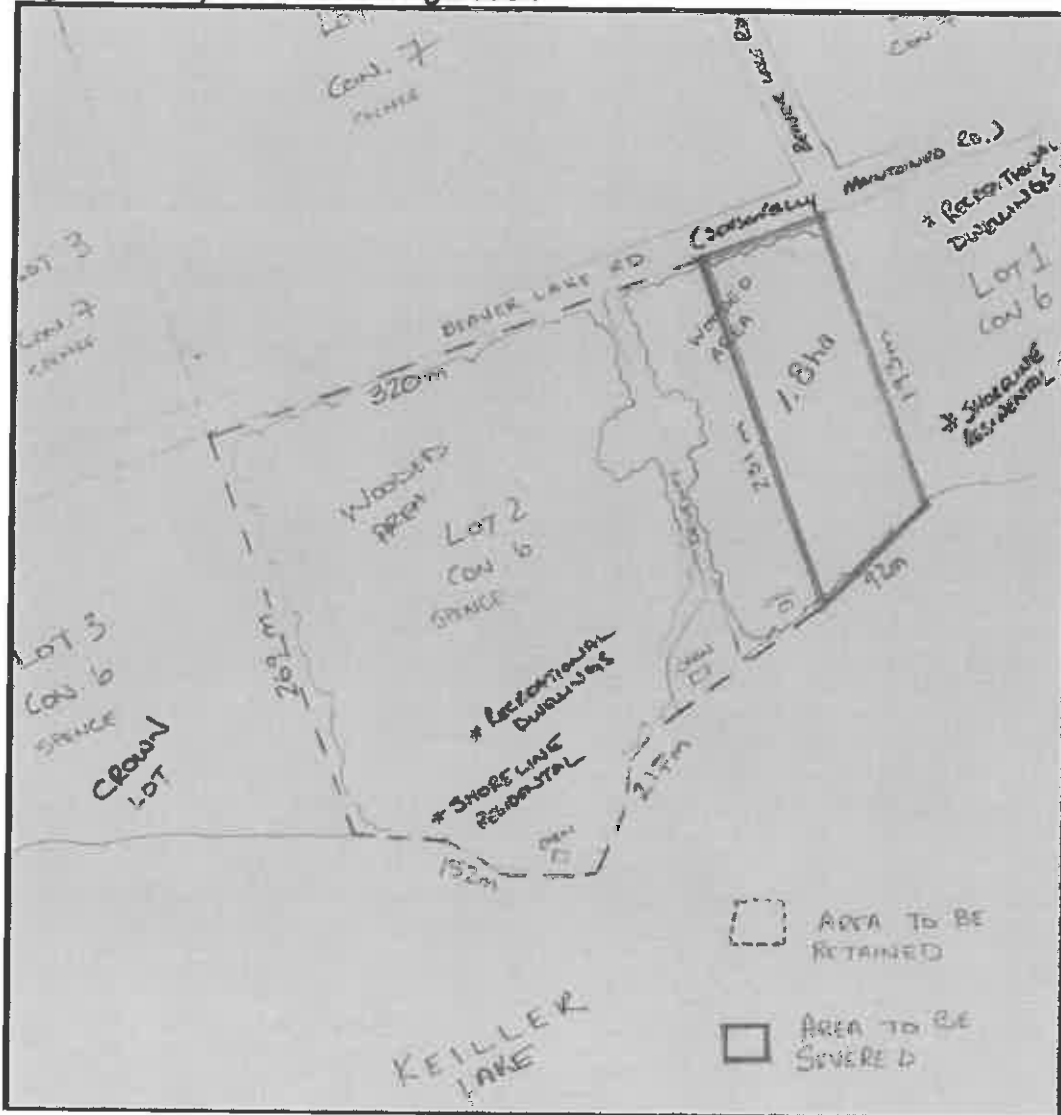 CON. 7
CON.
BEAVER LAKE RD
(SEASONALLY MAINTAINED RD.)
* RECREATIONAL
DWELLINGS
LOT 1
CON 6
* SHORELINE
RESIDENTIAL
LOT 3
CON. 7
BEAVER LAKE RD
320m
WOODED
AREA
1.8ha
193m
251m
92m
WOODED
AREA
LOT 2
CON. 6
SPENCE
LOT 3
CON. 6
SPENCE
CROWN
LOT
* RECREATIONAL
DWELLINGS
* SHORELINE
RESIDENTAL
152m
KEILLER
LAKE
AREA TO BE
RETAINED
AREA TO BE
SEVERED